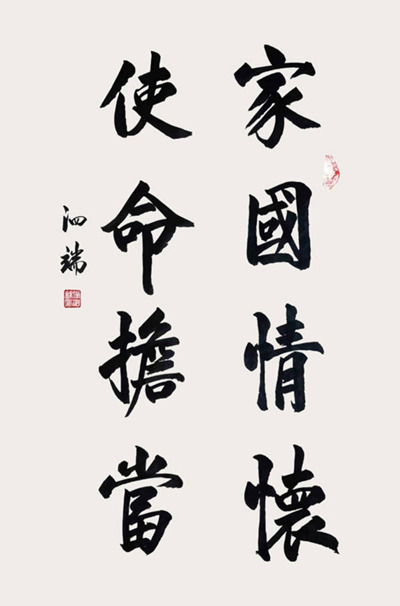 家國情懷
使命擔當
泗端